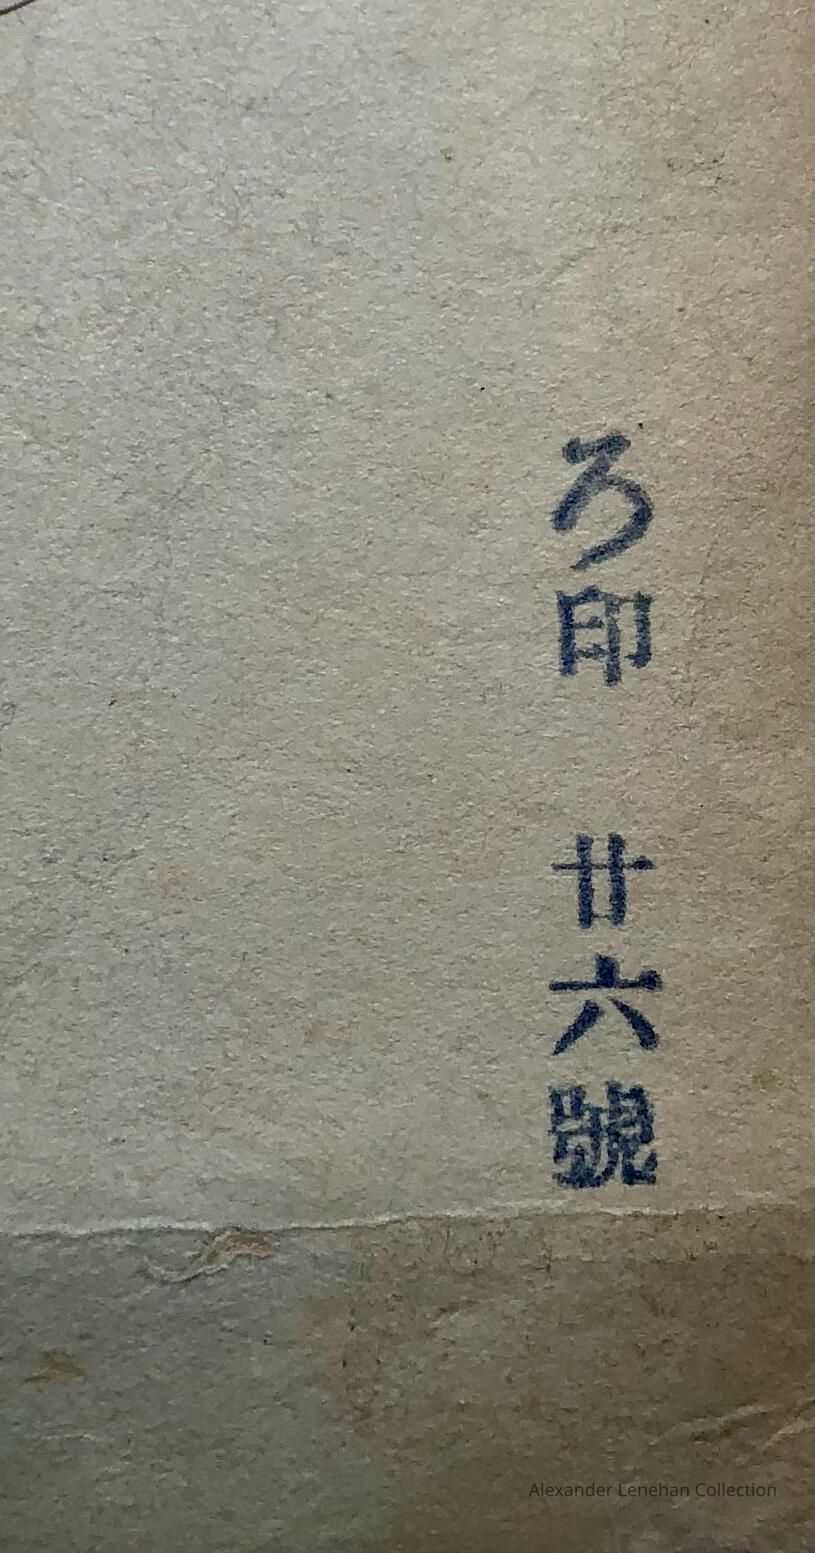 ろ印 廿六號
Alexander Lenehan Collection